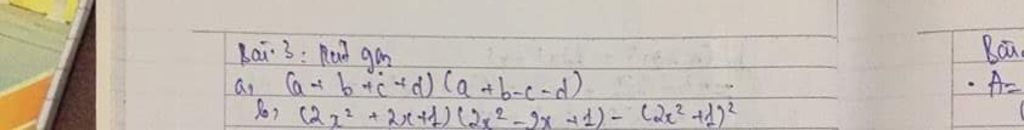 Bài 3: Rút gọn
a, (a + b + c + d) (a + b - c - d)
b, (2x² + 2x + 1) (2x² - 2x + 1) - (2x² + 1)²
Bài
• A =
(